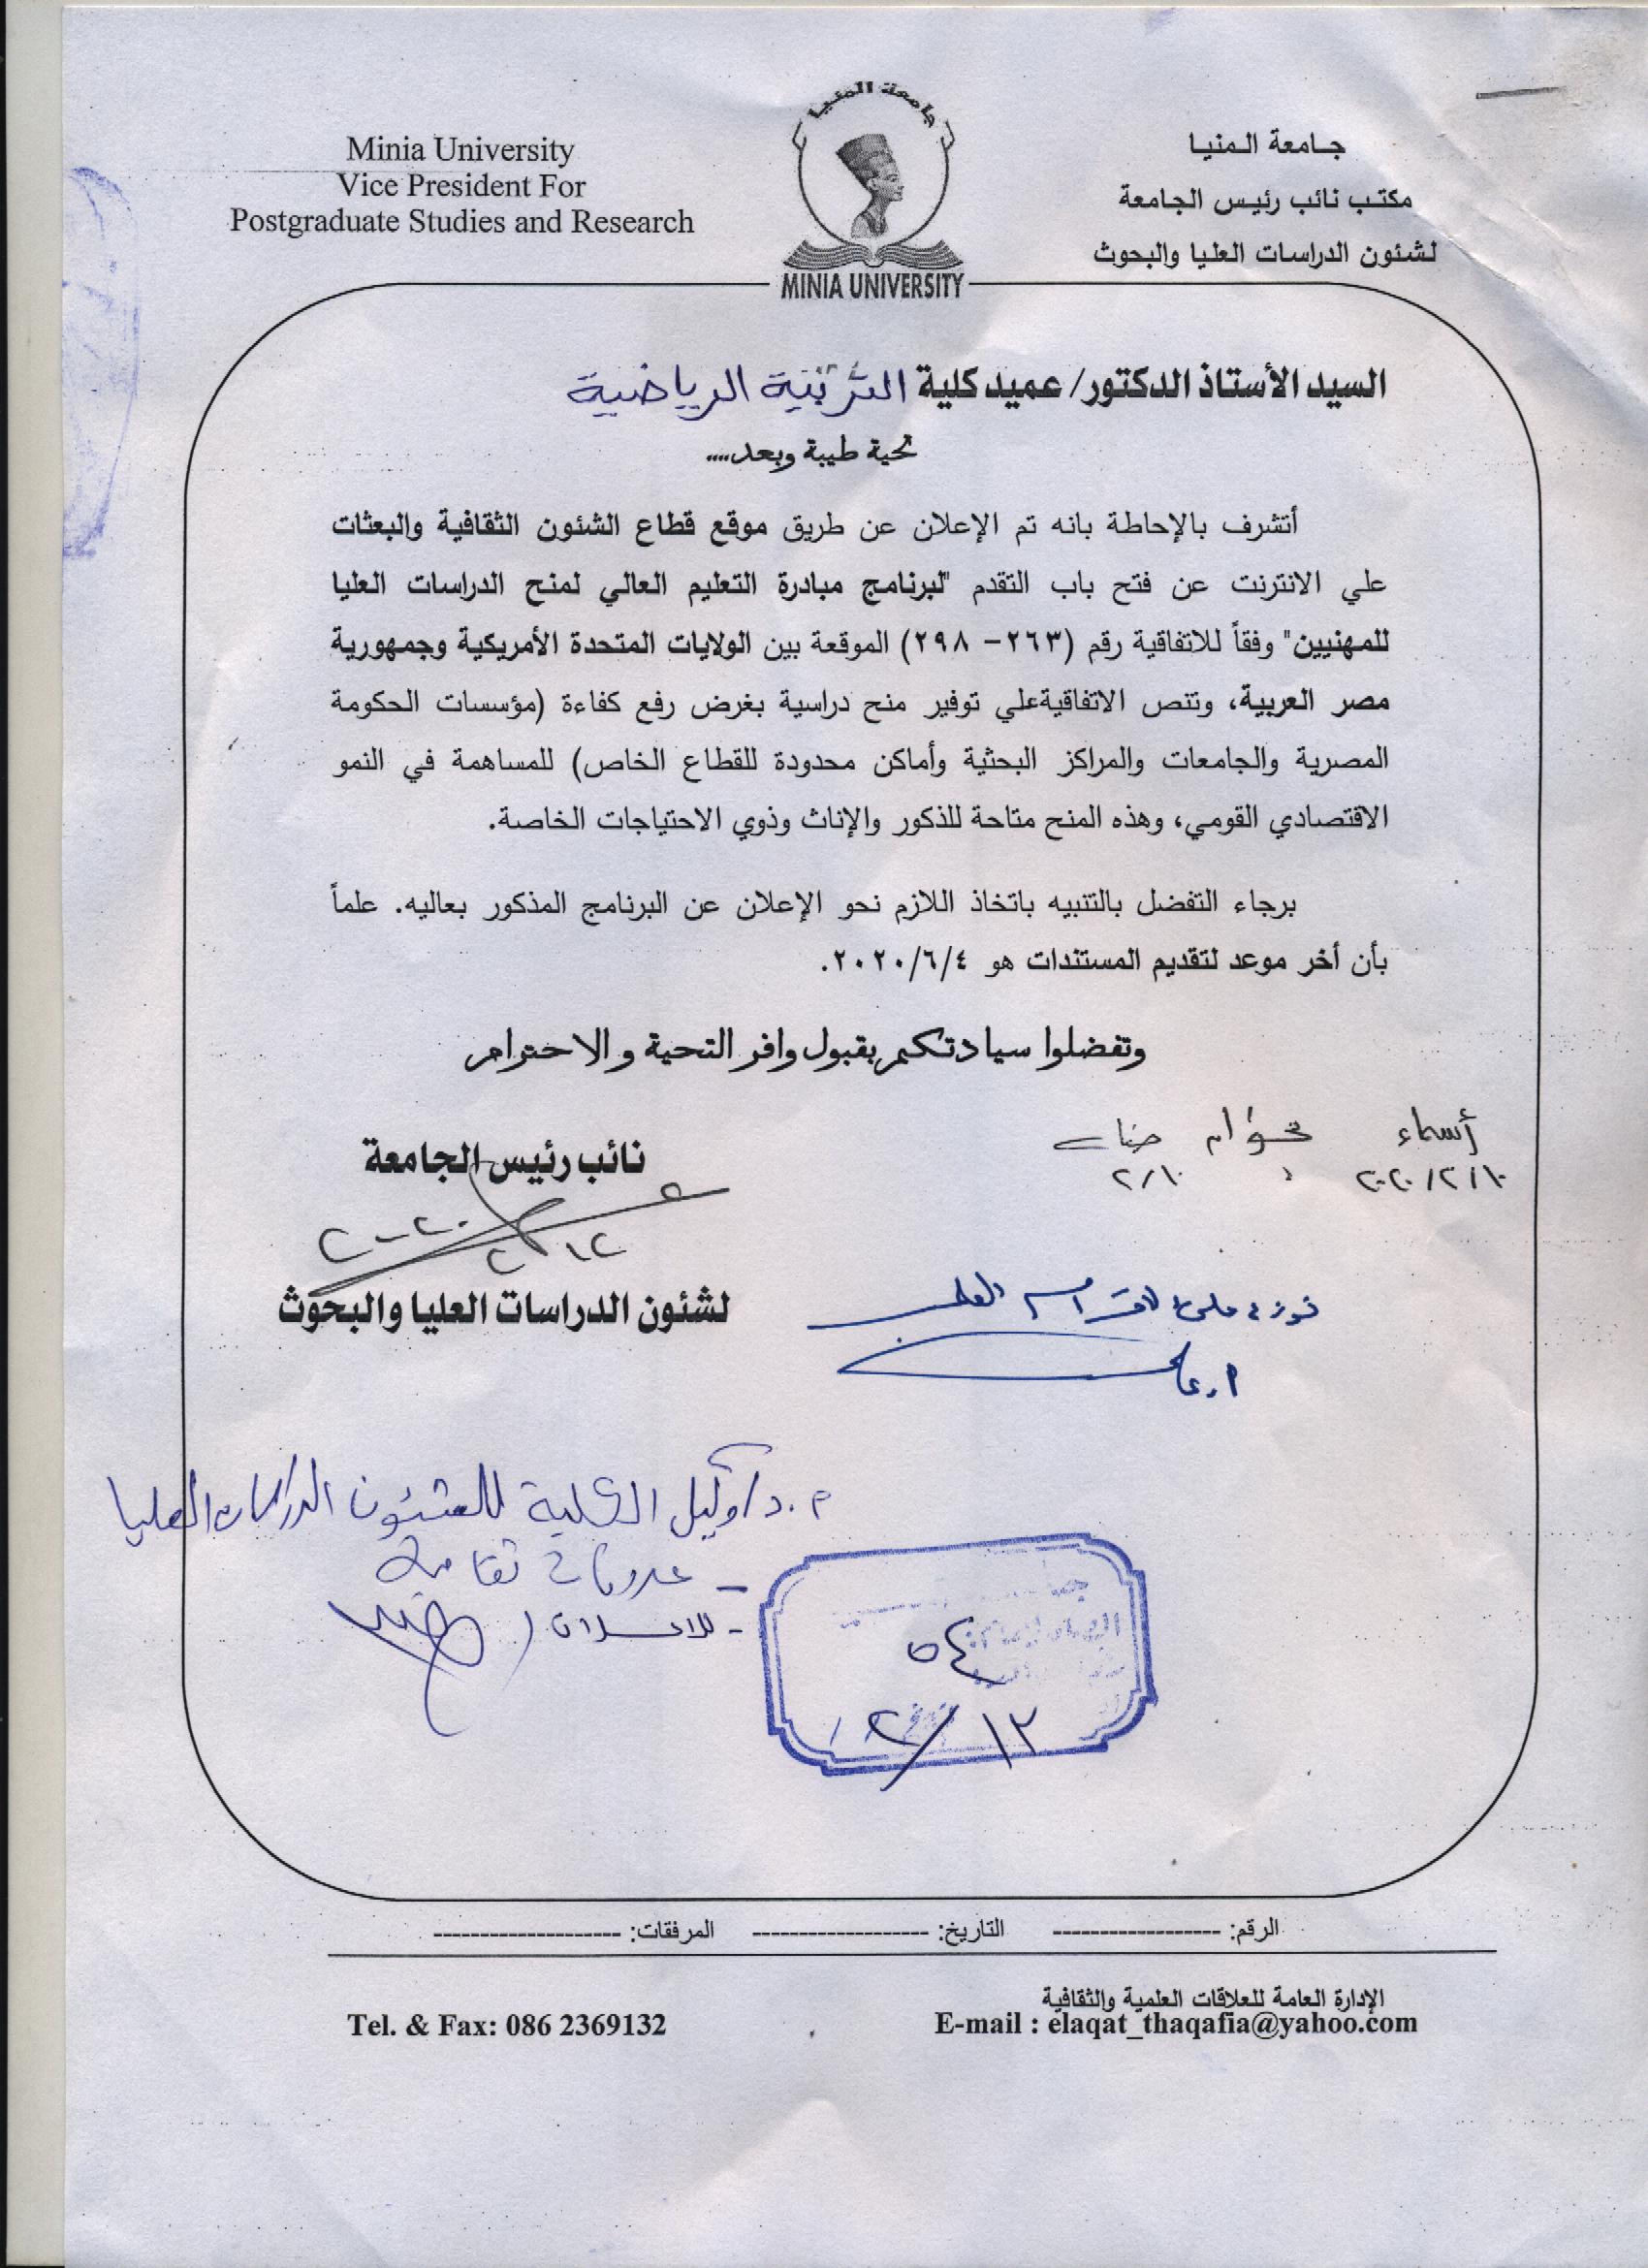 جامعة المنيا
مكتب نائب رئيس الجامعة
لشئون الدراسات العليا والبحوث
Minia University
Vice President For
Postgraduate Studies and Research
جامعة المنيا
MINIA UNIVERSITY
السيد الأستاذ الدكتور/ عميد كلية التربية الرياضية
تحية طيبة وبعد....
أتشرف بالإحاطة بانه تم الإعلان عن طريق موقع قطاع الشئون الثقافية والبعثات
علي الانترنت عن فتح باب التقدم "لبرنامج مبادرة التعليم العالي لمنح الدراسات العليا
للمهنيين" وفقاً للاتفاقية رقم (٢٦٣- ٢٩٨) الموقعة بين الولايات المتحدة الأمريكية وجمهورية
مصر العربية، وتنص الاتفاقيةعلي توفير منح دراسية بغرض رفع كفاءة (مؤسسات الحكومة
المصرية والجامعات والمراكز البحثية وأماكن محدودة للقطاع الخاص) للمساهمة في النمو
الاقتصادي القومي، وهذه المنح متاحة للذكور والإناث وذوي الاحتياجات الخاصة.
برجاء التفضل بالتنبيه باتخاذ اللازم نحو الإعلان عن البرنامج المذكور بعاليه. علماً
بأن أخر موعد لتقديم المستندات هو ٢٠٢٠/٦/٤.
وتفضلوا سيادتكم بقبول وافر التحية والاحترام
أسماء
٢٠٢٠/٢/١٠
٢/١٠
نائب رئيس الجامعة
٢٠٢٠
لشئون الدراسات العليا والبحوث
أ.د/ وكيل الكلية للشئون الدراسات العليا
- علاقات ثقافية
- للاعلان
٥٤
٢/١٢
الرقم: ------------------ التاريخ: ------------------- المرفقات: --------------------
الإدارة العامة للعلاقات العلمية والثقافية
E-mail : elaqat_thaqafia@yahoo.com
Tel. & Fax: 086 2369132